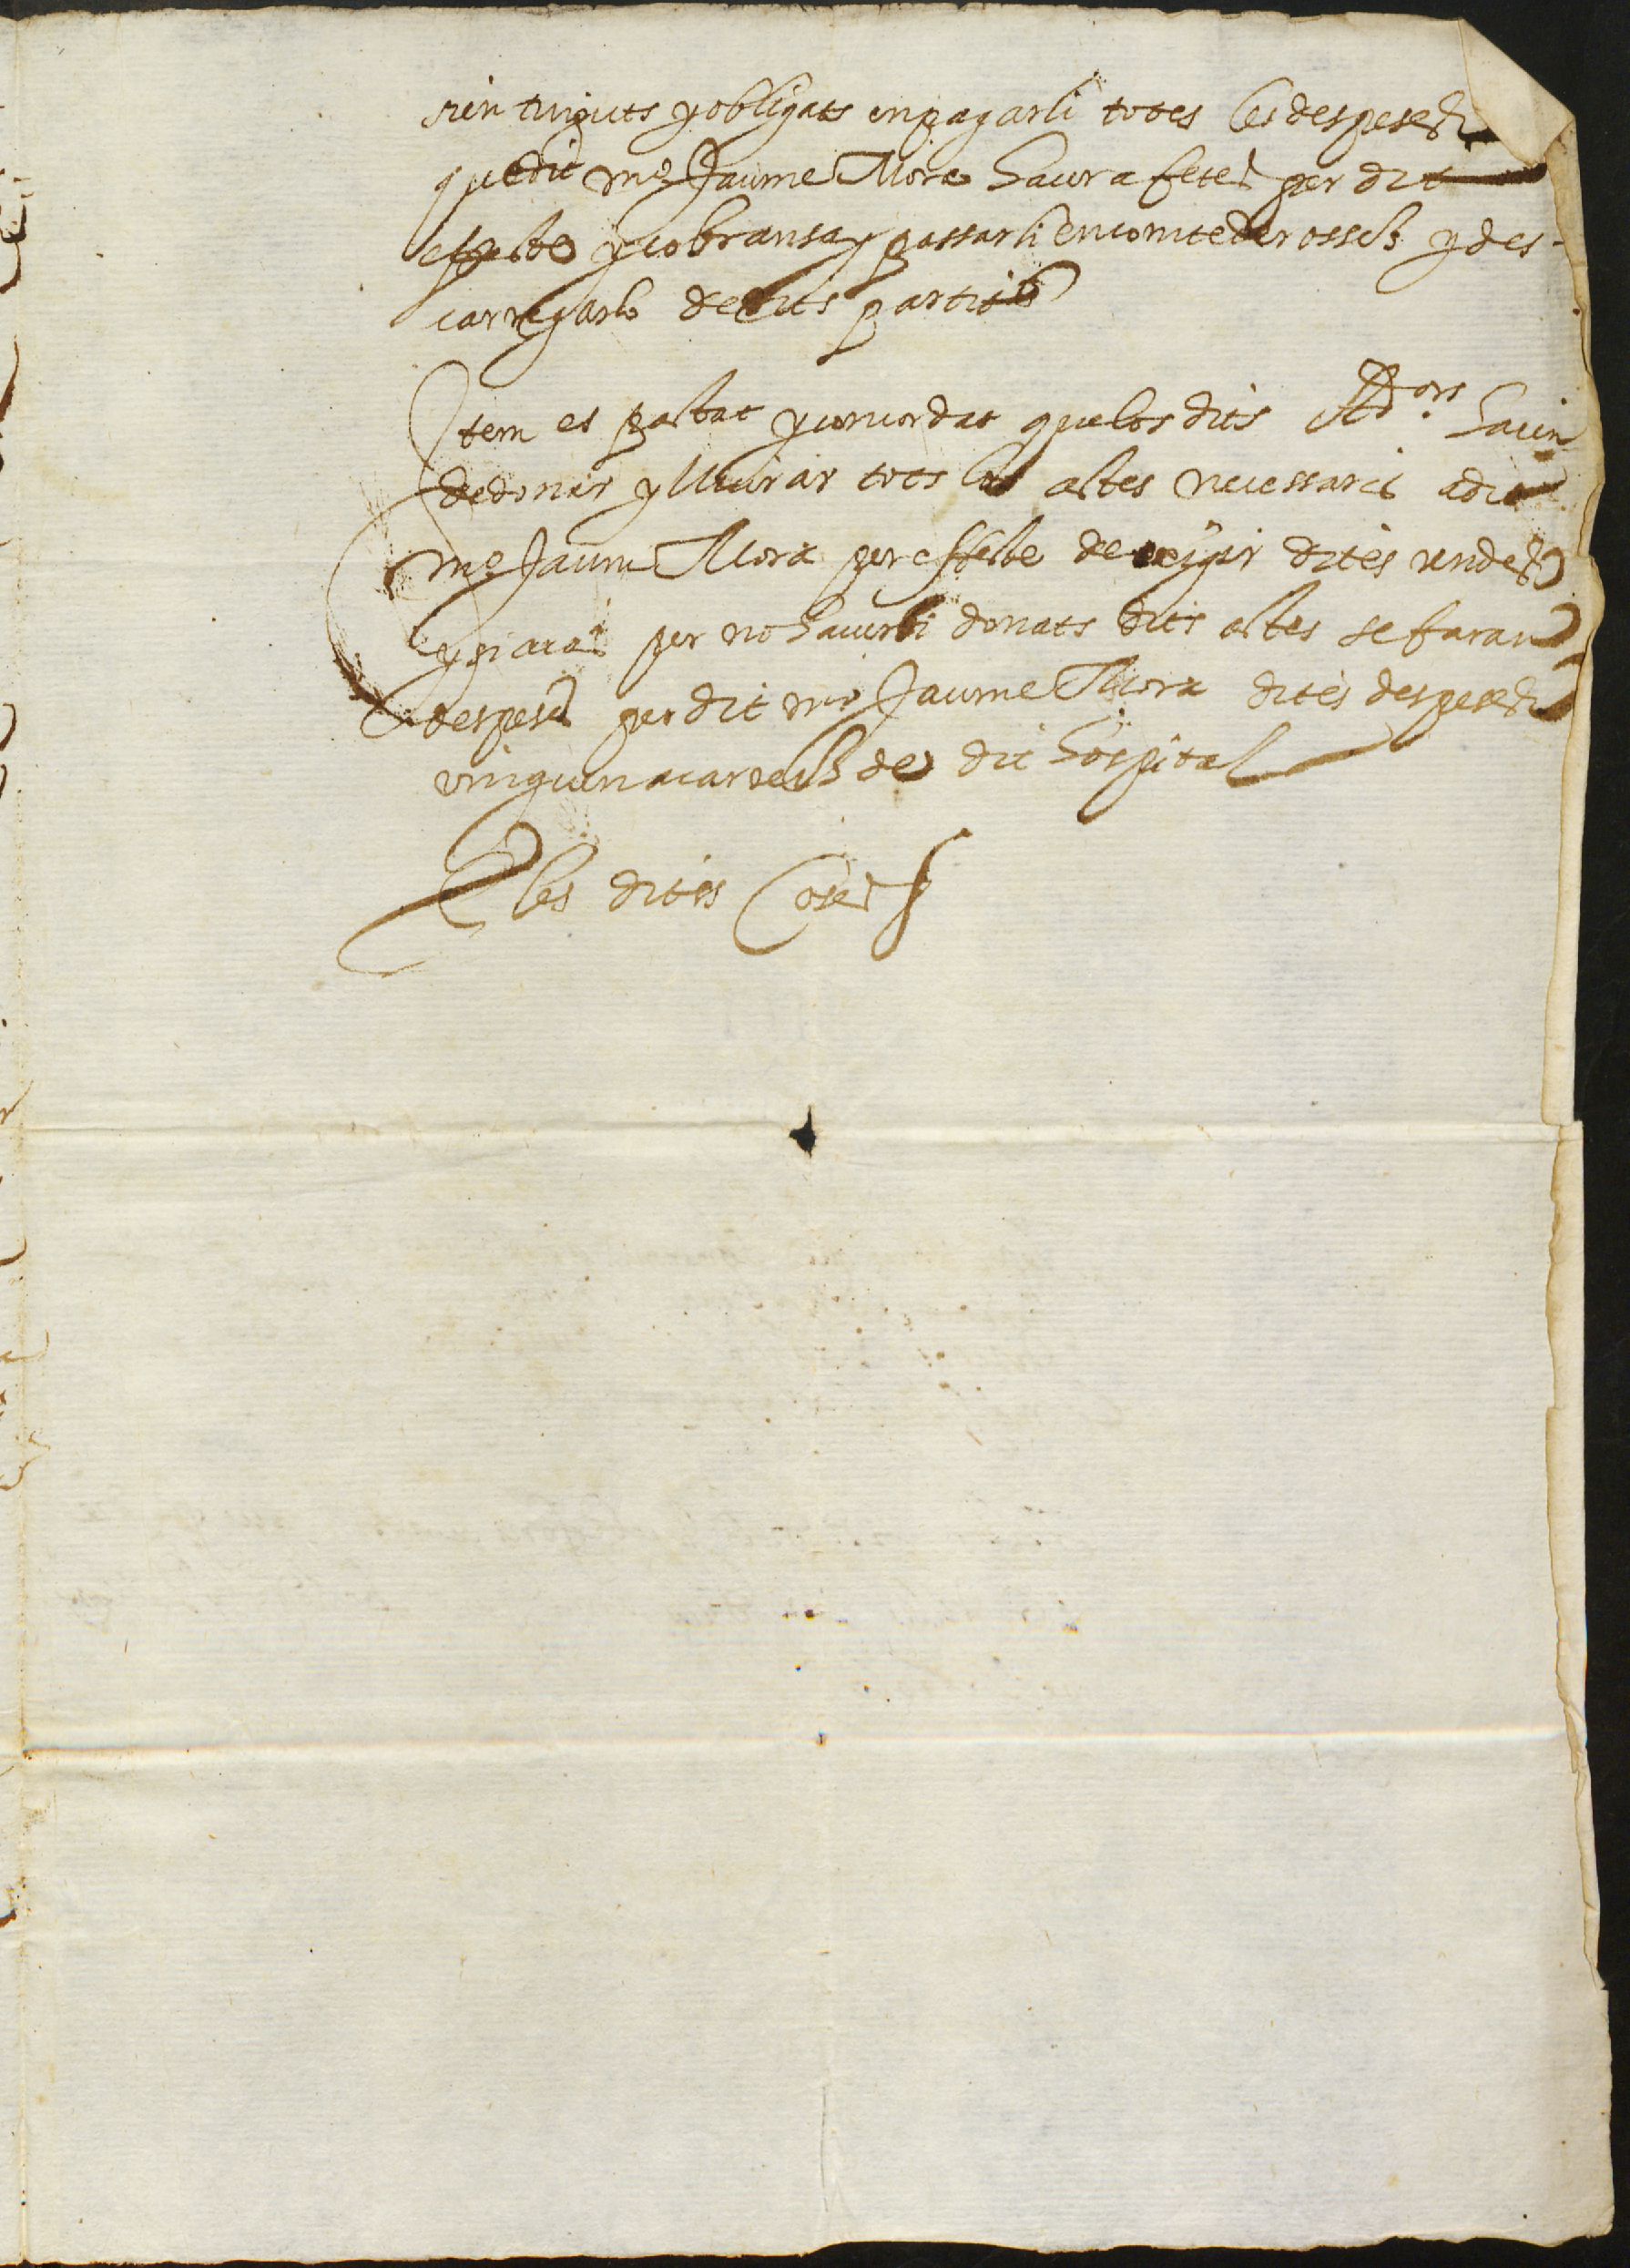 sien tinguts y obligats en pagarli totes les despeses
que dit mo Jaume Mora haura fetes per dit
effecte y cobransa y passarli en comte de rossech y des-
carregarlo de dits partits
Item es pactat y concordat que los dits Adors hauin
de donar y lliurar tots los actes necessaris a dit
mo Jaume Mora per effecte de exigir dites rendes
y si acas per no hauerli donats dits actes se faran
despeses per dit mo Jaume Mora dites despeses
vinguen a carrech de dit hospital
E les dites Coses